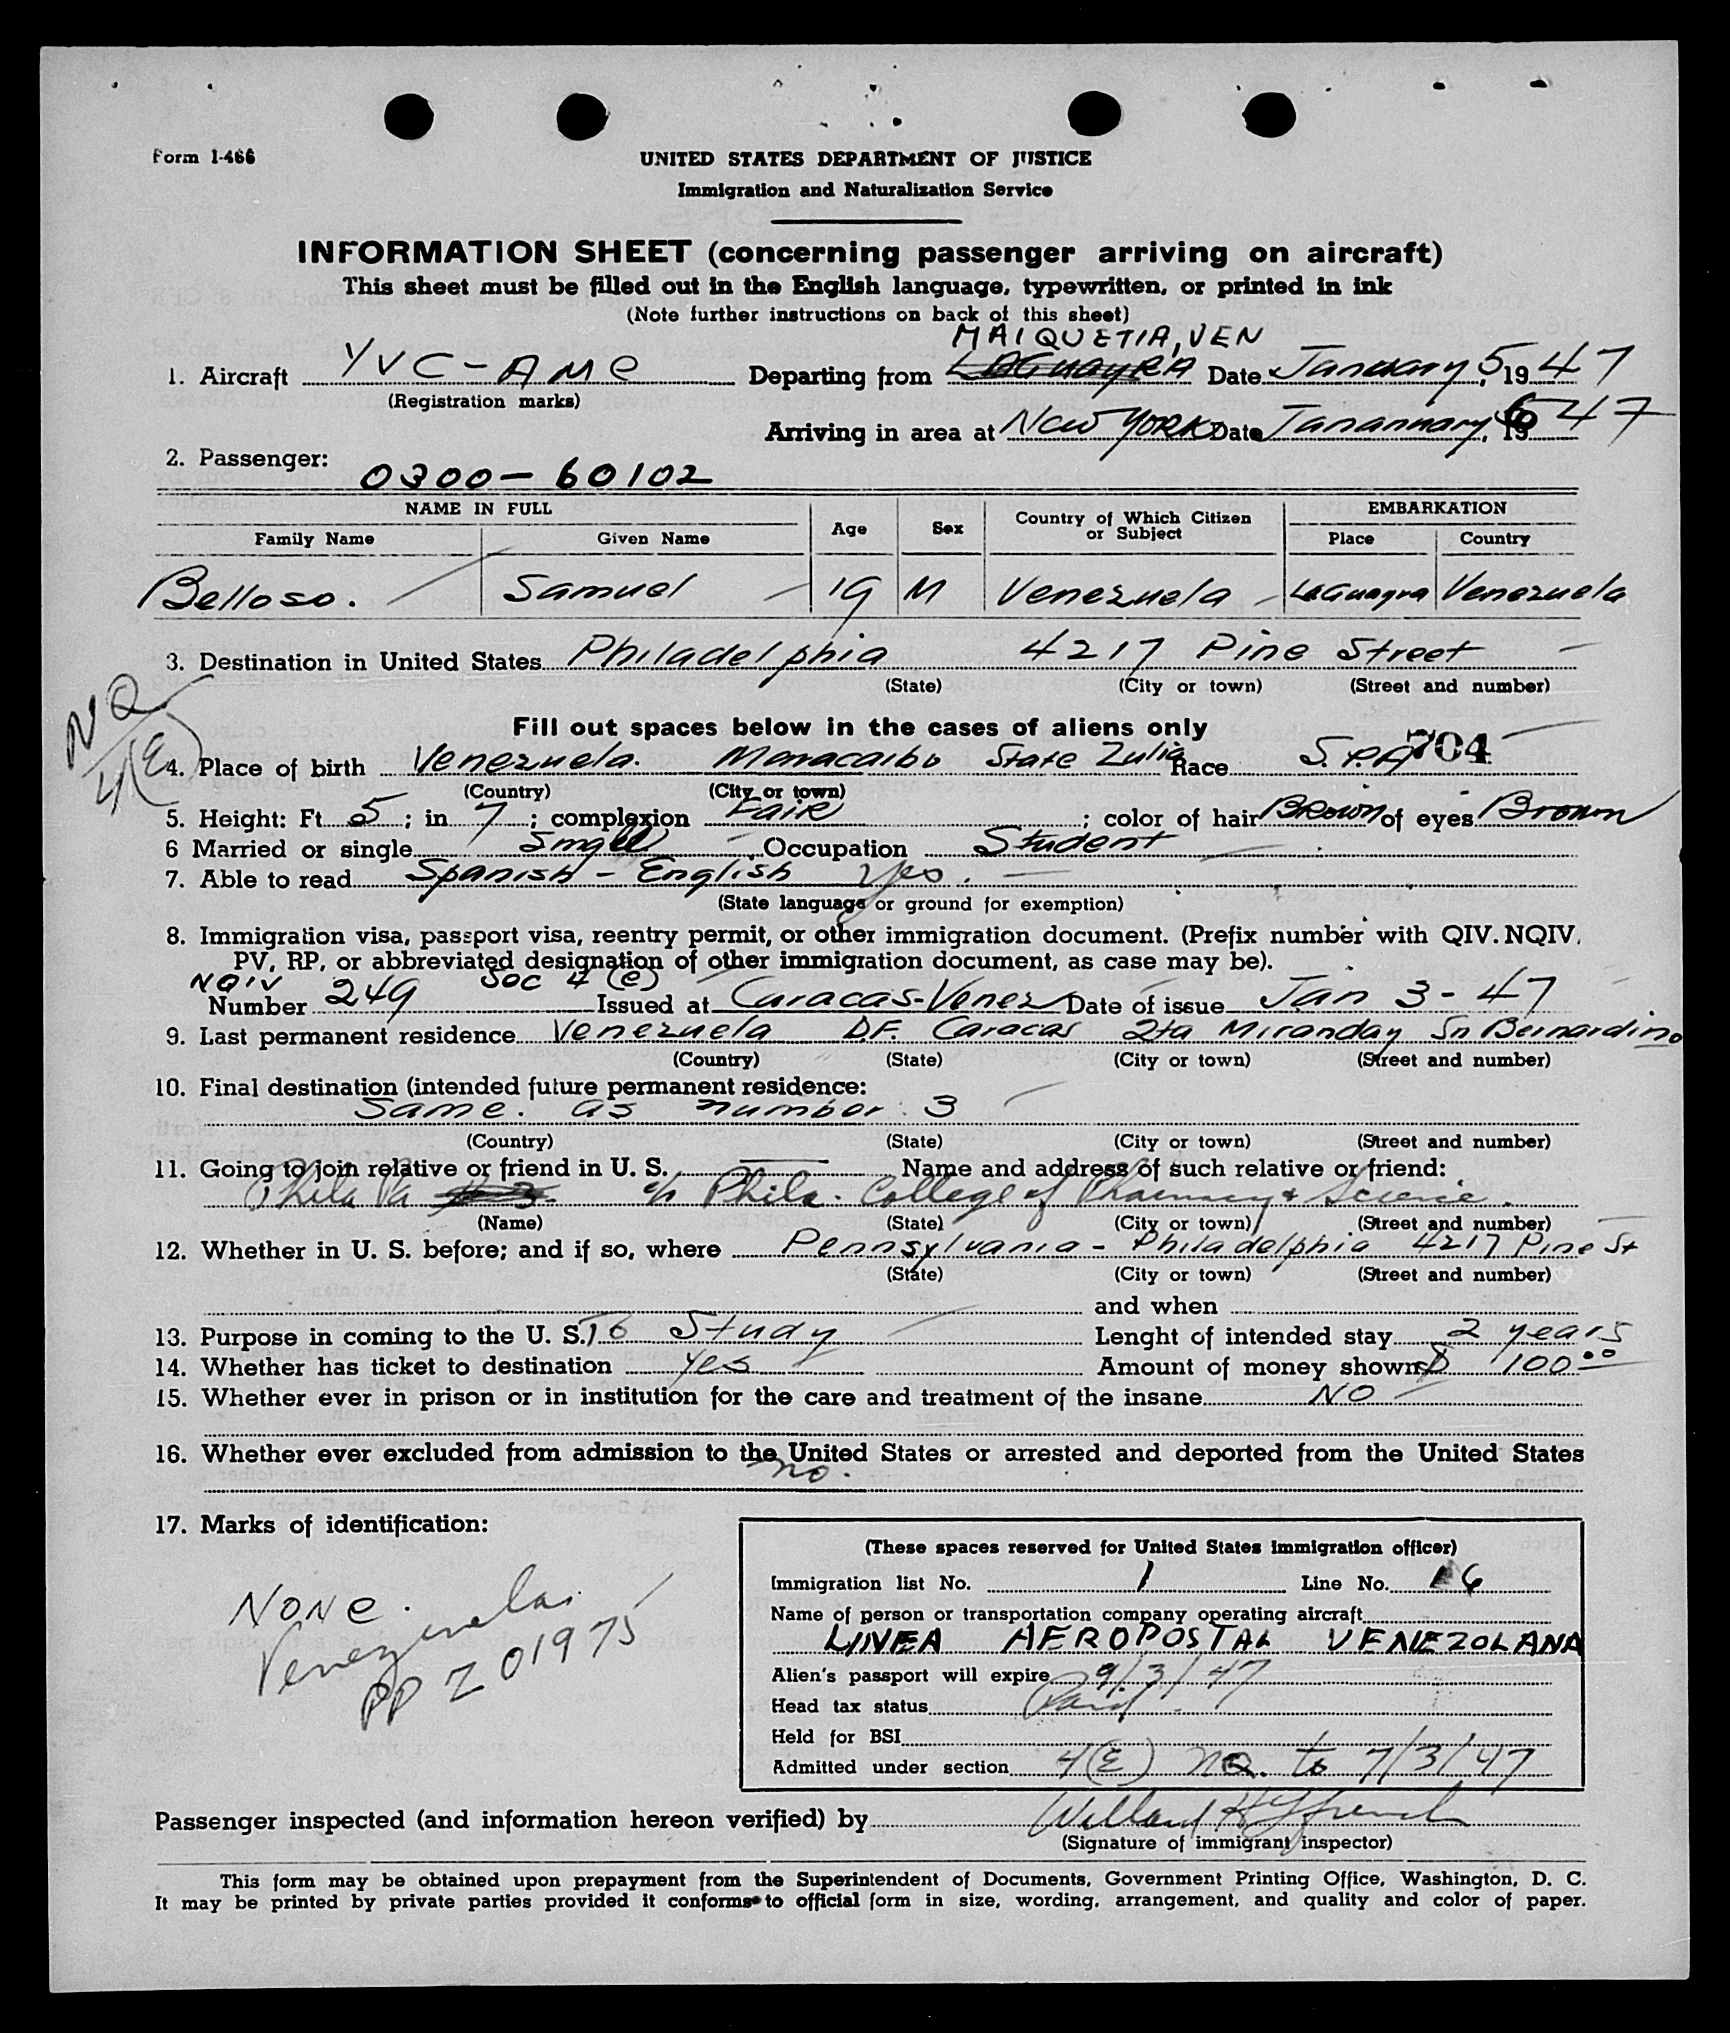 Form I-466
UNITED STATES DEPARTMENT OF JUSTICE
Immigration and Naturalization Service
INFORMATION SHEET (concerning passenger arriving on aircraft)
This sheet must be filled out in the English language, typewritten, or printed in ink
(Note further instructions on back of this sheet)
MAIQUETIA, VEN
1. Aircraft YVC-AME Departing from LAGuayRA Date January 5, 1947
(Registration marks)
Arriving in area at New YORK Date Janannary, 6 1947
2. Passenger: 0300-60102
NAME IN FULL Age Sex Country of Which Citizen or Subject EMBARKATION
Family Name Given Name Place Country
Belloso. Samuel 19 M Venezuela LaGuayra Venezuela
3. Destination in United States Philadelphia 4217 Pine Street
(State) (City or town) (Street and number)
NQ
4(e)
Fill out spaces below in the cases of aliens only
704
4. Place of birth Venezuela. Maracaibo State Zulia Race S.PA
(Country) (City or town)
5. Height: Ft. 5; in 7; complexion Fair; color of hair Brown of eyes Brown
6 Married or single Single Occupation Student
7. Able to read Spanish - English Yes.
(State language or ground for exemption)
8. Immigration visa, passport visa, reentry permit, or other immigration document. (Prefix number with QIV. NQIV,
PV, RP, or abbreviated designation of other immigration document, as case may be).
NQIV Sec 4 (e)
Number 249 Issued at Caracas-Venez Date of issue Jan 3-47
9. Last permanent residence Venezuela D.F. Caracas 2ta Miranday Sn Bernardino
(Country) (State) (City or town) (Street and number)
10. Final destination (intended future permanent residence:
Same. as number 3
(Country) (State) (City or town) (Street and number)
11. Going to join relative or friend in U. S. Name and address of such relative or friend:
Phila Pa c/o Phila. College of Pharmacy & Science.
(Name) (State) (City or town) (Street and number)
12. Whether in U. S. before; and if so, where Pennsylvania - Philadelphia 4217 Pine St
(State) (City or town) (Street and number)
and when
13. Purpose in coming to the U. S. To Study Lenght of intended stay 2 years
14. Whether has ticket to destination yes Amount of money shown $ 100.00
15. Whether ever in prison or in institution for the care and treatment of the insane NO
16. Whether ever excluded from admission to the United States or arrested and deported from the United States
no.
17. Marks of identification:
None.
Venezuelan
PP 201975
(These spaces reserved for United States immigration officer)
Immigration list No. 1 Line No. 6
Name of person or transportation company operating aircraft
LINEA AEROPOSTAL VENEZOLANA
Alien's passport will expire 9/3/47
Head tax status Paid.
Held for BSI
Admitted under section 4(E) NQ. to 7/3/47
Passenger inspected (and information hereon verified) by Willard H French
(Signature of immigrant inspector)
This form may be obtained upon prepayment from the Superintendent of Documents, Government Printing Office, Washington, D. C.
It may be printed by private parties provided it conforms to official form in size, wording, arrangement, and quality and color of paper.